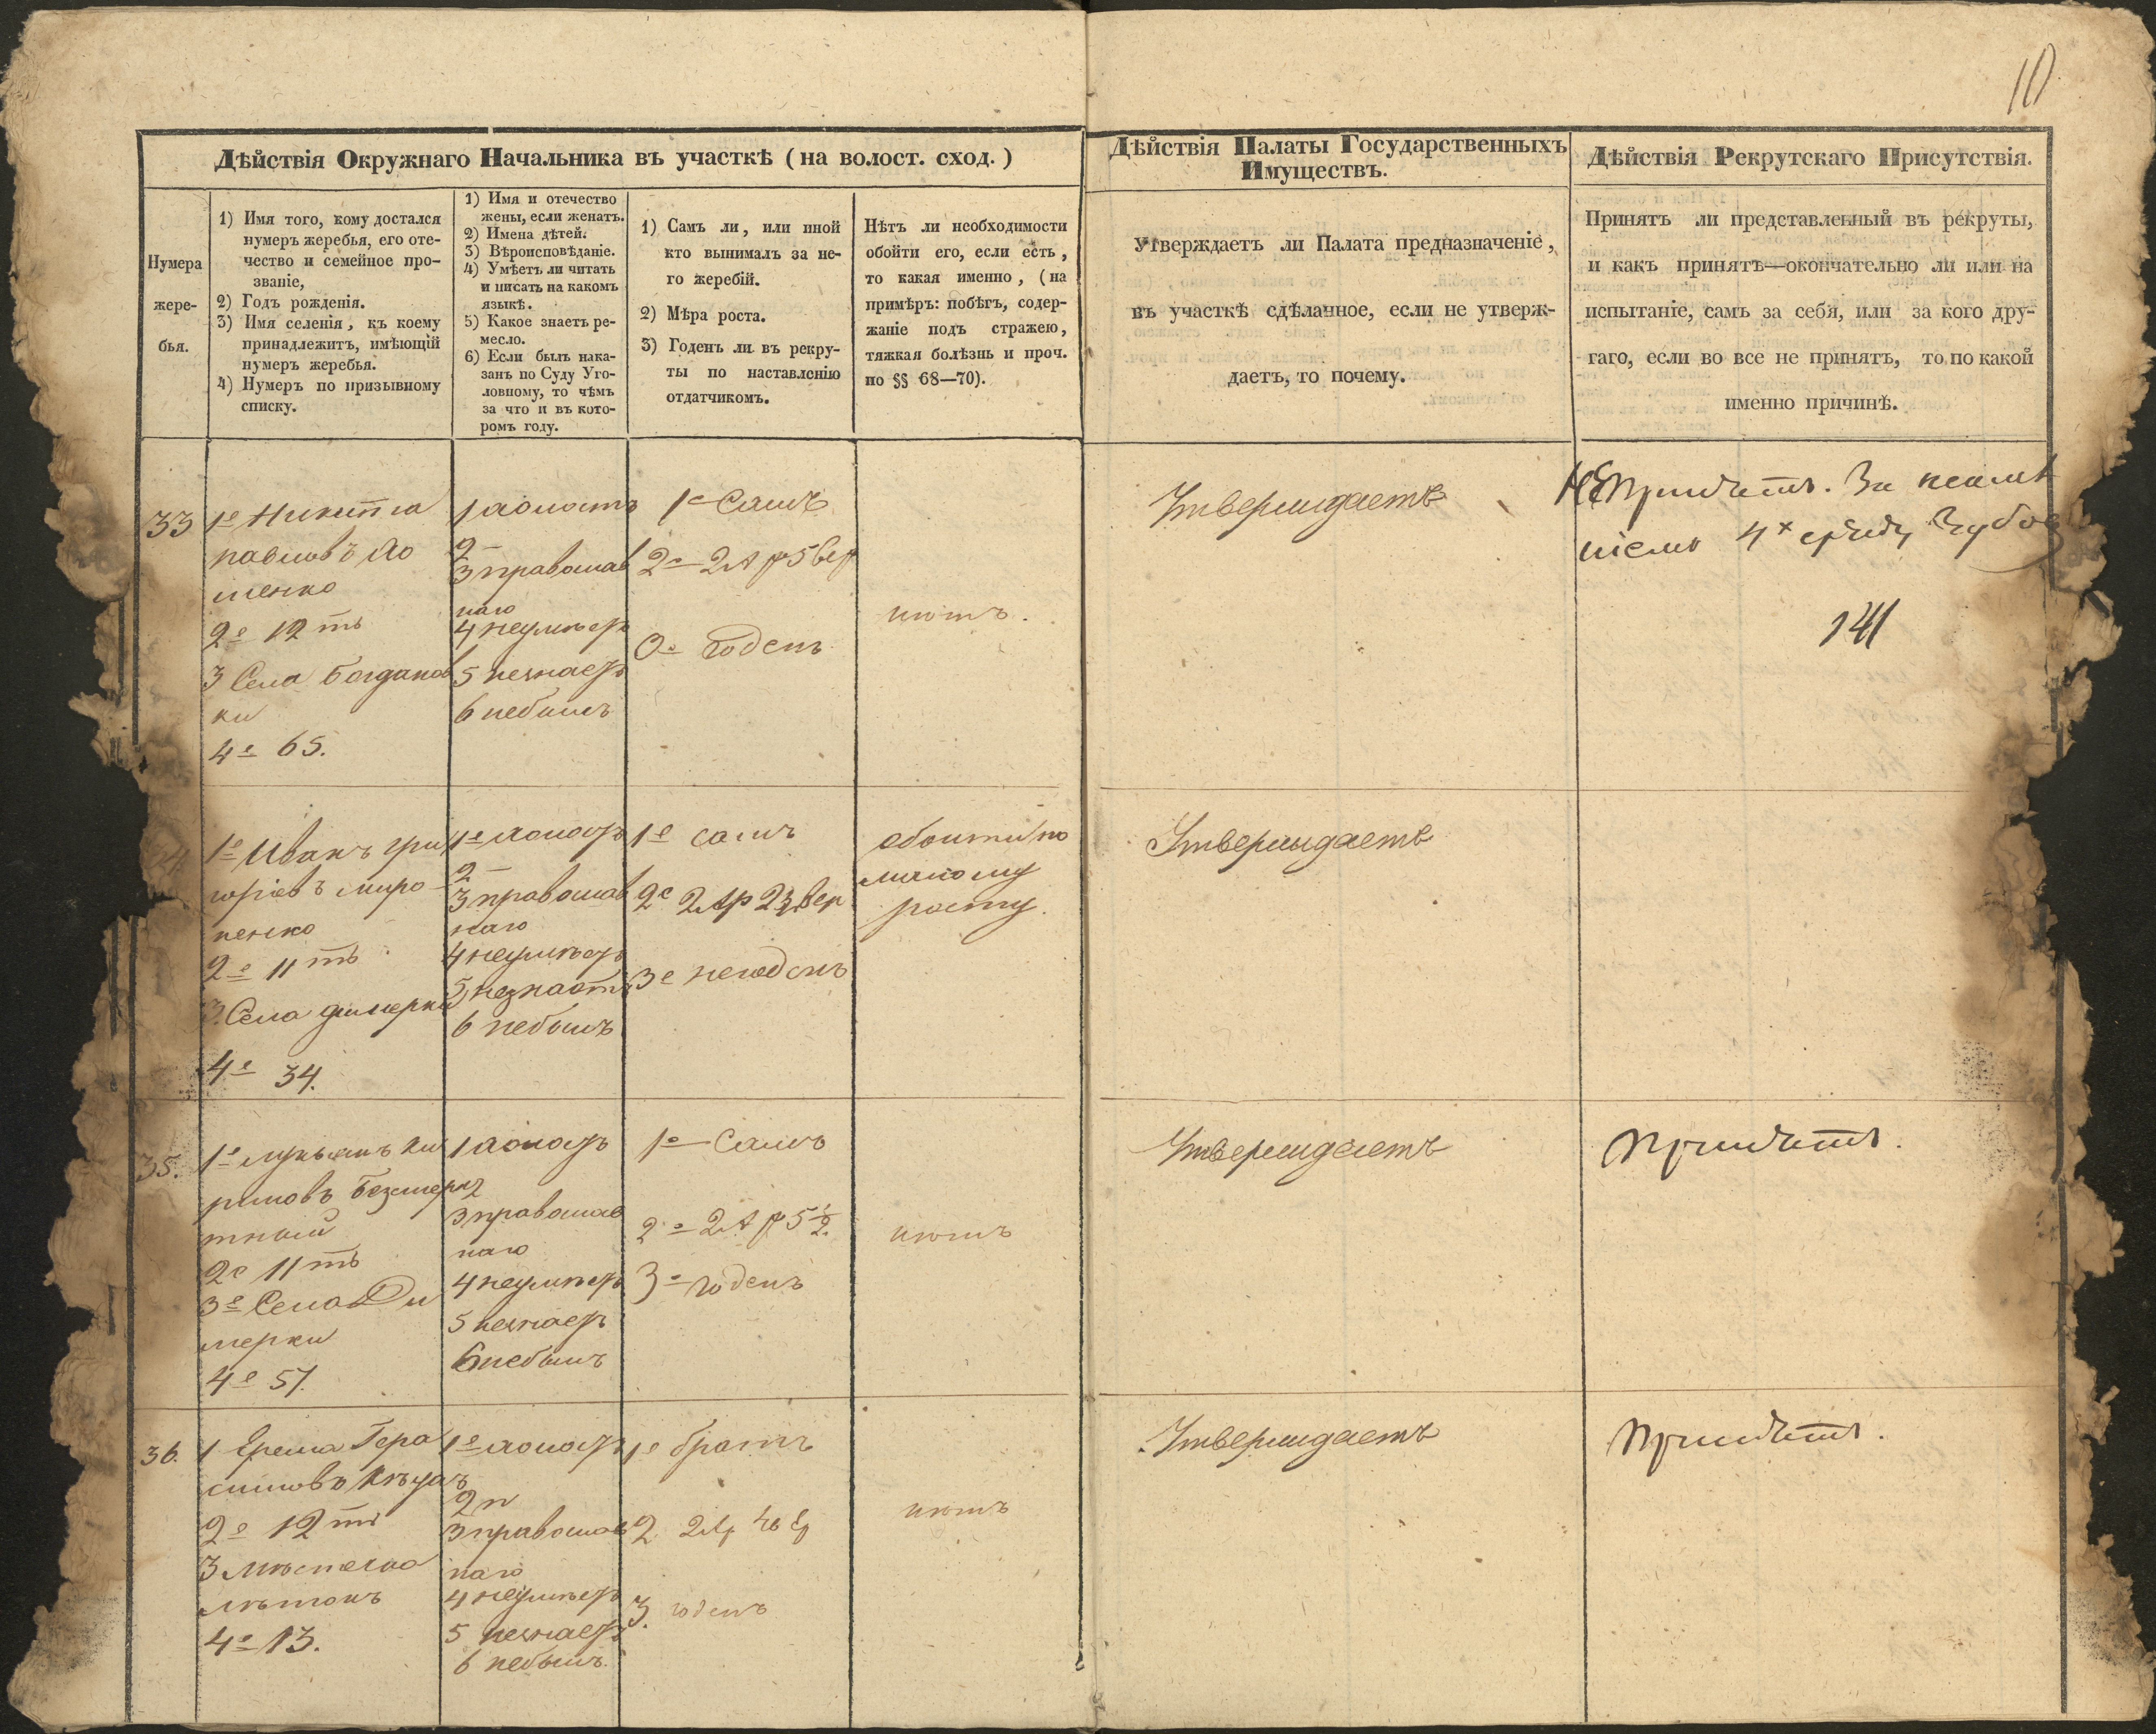 10
Дѣйствія Окружнаго Начальника въ участкѣ (на волост. сход.)
Дѣйствія Палаты Государственныхъ
Имуществъ.
Дѣйствія Рекрутскаго Присутствія.
Нумера
жере-
бья.
1) Имя того, кому достался
нумеръ жеребья, его оте-
чество и семейное про-
званіе,
2) Годъ рожденія.
3) Имя селенія, къ коему
принадлежитъ, имѣющій
нумеръ жеребья.
4) Нумеръ по призывному
списку.
1) Имя и отечество
жены, если женатъ.
2) Имена дѣтей.
3) Вѣроисповѣданіе.
4) Умѣетъ ли читать
и писать на какомъ
языкѣ.
5) Какое знаетъ ре-
месло.
6) Если былъ нака-
занъ по Суду Уго-
ловному, то чѣмъ
за что и въ кото-
ромъ году.
1) Самъ ли, или иной
кто вынималъ за не-
го жеребій.
2) Мѣра роста.
3) Годенъ ли въ рекру-
ты по наставленію
отдатчикомъ.
Нѣтъ ли необходимости
обойти его, если есть,
то какая именно, (на
примѣръ: побѣгъ, содер-
жаніе подъ стражею,
тяжкая болѣзнь и проч.
по §§ 68—70).
Утверждаетъ ли Палата предназначеніе,
въ участкѣ сдѣланное, если не утверж-
даетъ, то почему.
Принятъ ли представленный въ рекруты,
и какъ принятъ—окончательно ли или на
испытаніе, самъ за себя, или за кого дру-
гаго, если во все не принятъ, то по какой
именно причинѣ.
33
1е Никита
павловъ
2е 12ть
3 Села Богданов
ки
4е 65.
1 холостъ
2 —
3 православ
наго
4 неумѣетъ
5 незнаетъ
6 небылъ
1е Самъ
2е 2 Ар 5 вер
годенъ
нѣтъ.
Утверждаетъ
Не Принятъ. За
4х Зубовъ
141
1е Иванъ гри
горіевъ миро
ненко
2е 11ть
3. Села димерки
4е 34.
1е холостъ
2 —
3 православ
наго
4 неумѣетъ
5 незнаетъ
6 небылъ
1е самъ
2е 2 Ар 2 вер
3е негоденъ
обойти по
малому
росту.
Утверждаетъ
35.
1е лукьянъ ки
риловъ Безмер
тный
2е 11ть
3е Села Ди
мерки
4е 57.
1 холостъ
2
3 православ
наго
4 неумѣетъ
5 незнаетъ
6 небылъ
1е Самъ
2е 2 Ар 5 1/2.
3е годенъ
нѣтъ
Утверждаетъ
Принятъ.
36.
1 Ерема Гера
симовъ
2е 12ть
3
4е 13.
1е холостъ
2
3 православ
наго
4 неумѣетъ
5 незнаетъ
6 небылъ.
1е братъ
2 2 Ар 4 вер
3. годенъ
нѣтъ
Утверждаетъ
Принятъ.